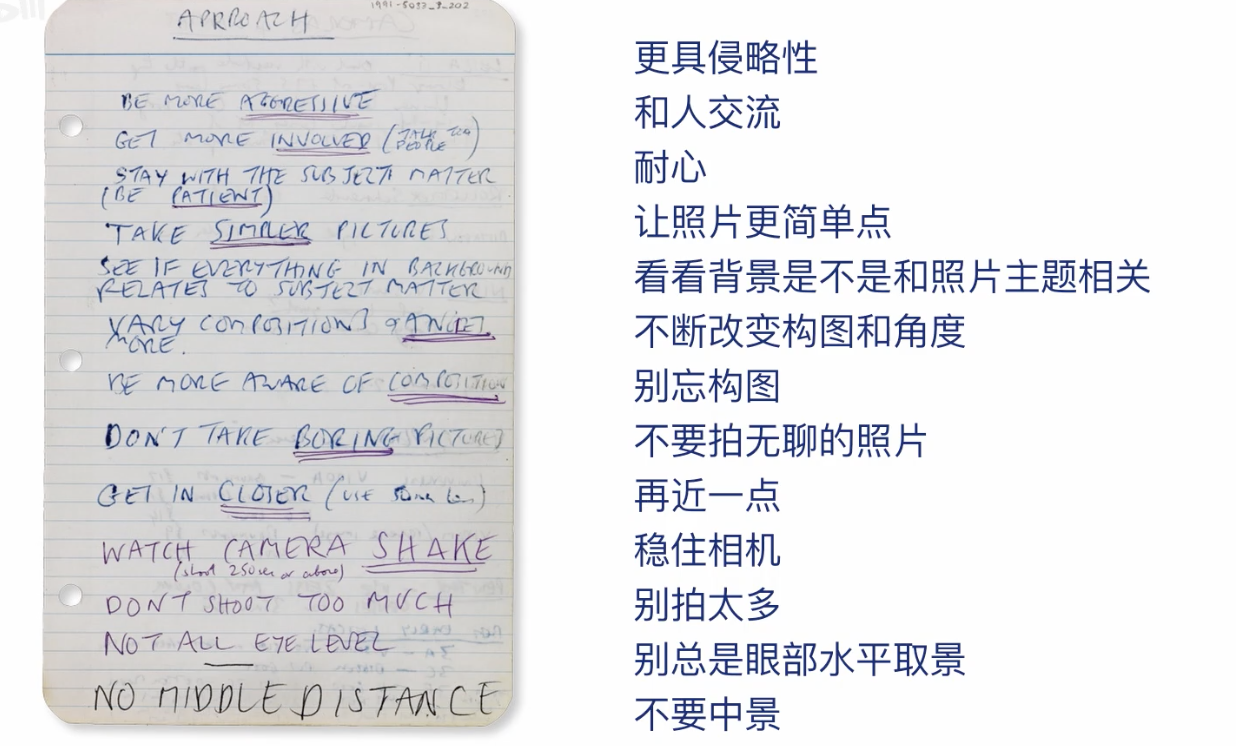 APPROACH
BE MORE AGGRESSIVE
GET MORE INVOLVED (TALK TO PEOPLE)
STAY WITH THE SUBJECT MATTER
(BE PATIENT)
TAKE SIMPLER PICTURES
SEE IF EVERYTHING IN BACKGROUND
RELATES TO SUBJECT MATTER
VARY COMPOSITIONS & ANGLES
MORE.
BE MORE AWARE OF COMPOSITION
DON'T TAKE BORING PICTURES
GET IN CLOSER (USE 50mm Lens)
WATCH CAMERA SHAKE
(shoot 250sec or above)
DON'T SHOOT TOO MUCH
NOT ALL EYE LEVEL
NO MIDDLE DISTANCE
更具侵略性
和人交流
耐心
让照片更简单点
看看背景是不是和照片主题相关
不断改变构图和角度
别忘构图
不要拍无聊的照片
再近一点
稳住相机
别拍太多
别总是眼部水平取景
不要中景